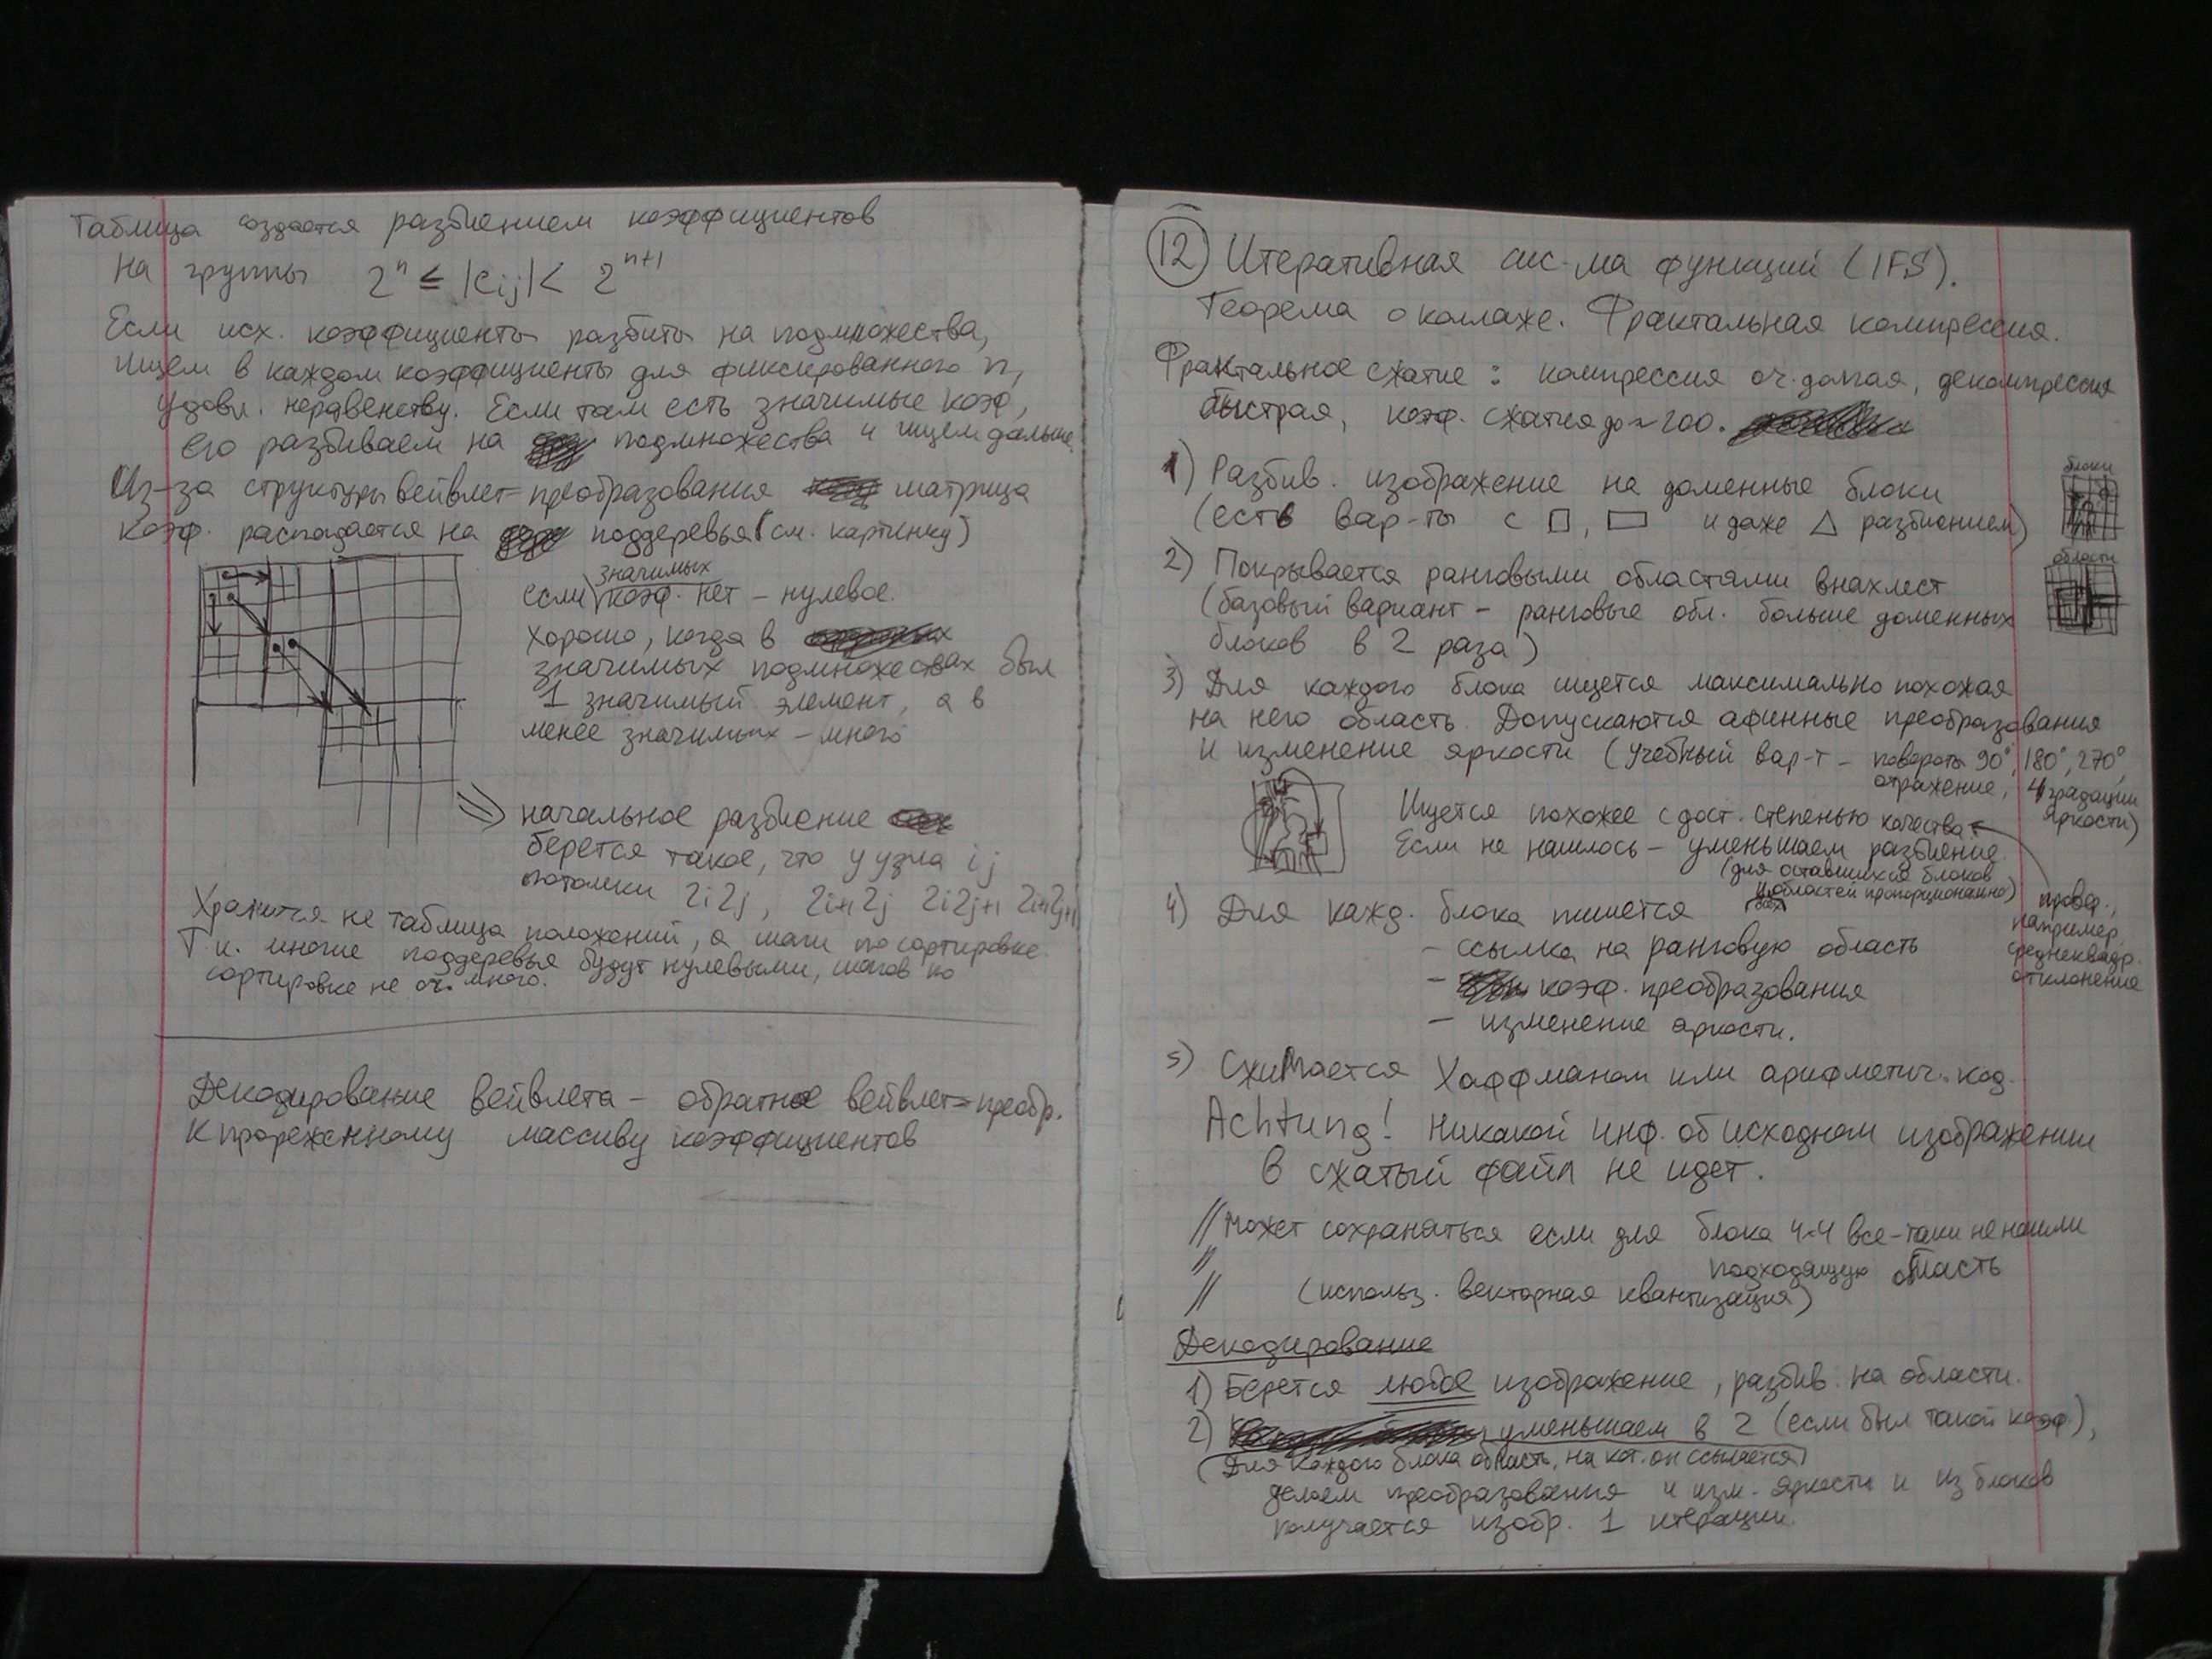 Таблица создается разбиением коэффициентов
на группы 2^n ≤ |c_ij| < 2^{n+1}
Если исх. коэффициенты разбиты на подмножества,
ищем в каждом коэффициенты для фиксированного n,
удовл. неравенству. Если там есть значимые коэф,
его разбиваем на подмножества и ищем дальше
Из-за структуры вейвлет-преобразования матрица
коэф. распадается на поддеревья (см. картинку)
если значимых коэф. нет – нулевое.
хорошо, когда в
значимых подмножествах был
1 значимый элемент, а в
менее значимых – много
=> начальное разбиение
берется такое, что у узла ij
потомки 2i2j, 2i+1 2j 2i2j+1 2i+1 2j+1
Хранится не таблица положений, а шаги по сортировке.
Т.к. многие поддеревья будут нулевыми, шагов по
сортировке не оч. много.
Декодирование вейвлета – обратное вейвлет-преобр.
к прореженному массиву коэффициентов
12 Итеративная сис-ма функций (IFS).
Теорема о коллаже. Фрактальная компрессия.
Фрактальное сжатие: компрессия оч. долгая, декомпрессия
быстрая, коэф. сжатия до ~200.
1) Разбив. изображение на доменные блоки
(есть вар-ты с □, ▭ и даже △ разбиением)
блоки
2) Покрывается ранговыми областями внахлест
(базовый вариант – ранговые обл. больше доменных
блоков в 2 раза)
области
3) Для каждого блока ищется максимально похожая
на него область. Допускаются афинные преобразования
и изменение яркости (учебный вар-т – повороты 90°, 180°, 270°,
отражение, 4 градации
яркости)
Ищется похожее с дост. степенью качества
Если не нашлось – уменьшаем разбиение
(для оставшихся блоков
и областей пропорционально)
провер.,
например,
среднеквадр.
отклонение
4) Для кажд. блока пишется
– ссылка на ранговую область
– коэф. преобразования
– изменение яркости.
5) Сжимается Хаффманом или арифметич. код.
Achtung! Никакой инф. об исходном изображении
в сжатый файл не идет.
// Может сохраняться если для блока 4×4 все-таки не нашли
// подходящую область
// (использ. векторная квантизация)
Декодирование
1) Берется любое изображение, разбив. на области.
2) уменьшаем в 2 (если был такой коэф.),
(Для каждого блока область, на кот. он ссылается)
делаем преобразования и изм. яркости и из блоков
получается изобр. 1 итерации.